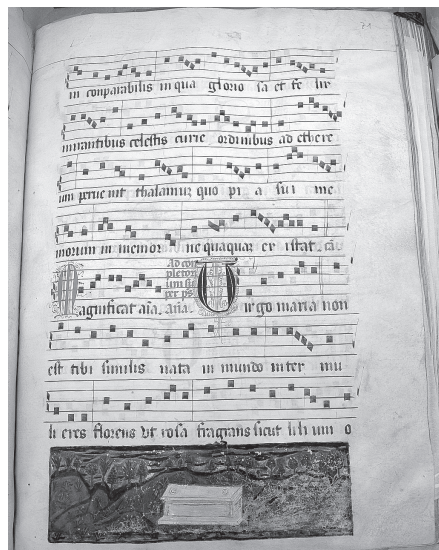 in conparabilis in qua glorio sa et fe lix
iuuantibus celestis curie ordinibus ad ethere
um peruenit thalamum quo pi a sui me
morum in memor ne quaquam ex istat.
Magnificat aña. aña. Uirgo maria non
Ad con
pleto
est tibi similis nata in mundo inter mu
li eres florens vt rosa fragrans sicut lili um o